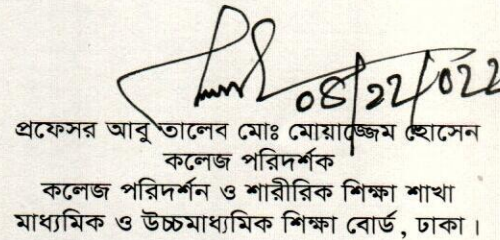 ০৪/১২/০২২
প্রফেসর আবু তালেব মোঃ মোয়াজ্জেম হোসেন
কলেজ পরিদর্শক
কলেজ পরিদর্শন ও শারীরিক শিক্ষা শাখা
মাধ্যমিক ও উচ্চমাধ্যমিক শিক্ষা বোর্ড, ঢাকা।